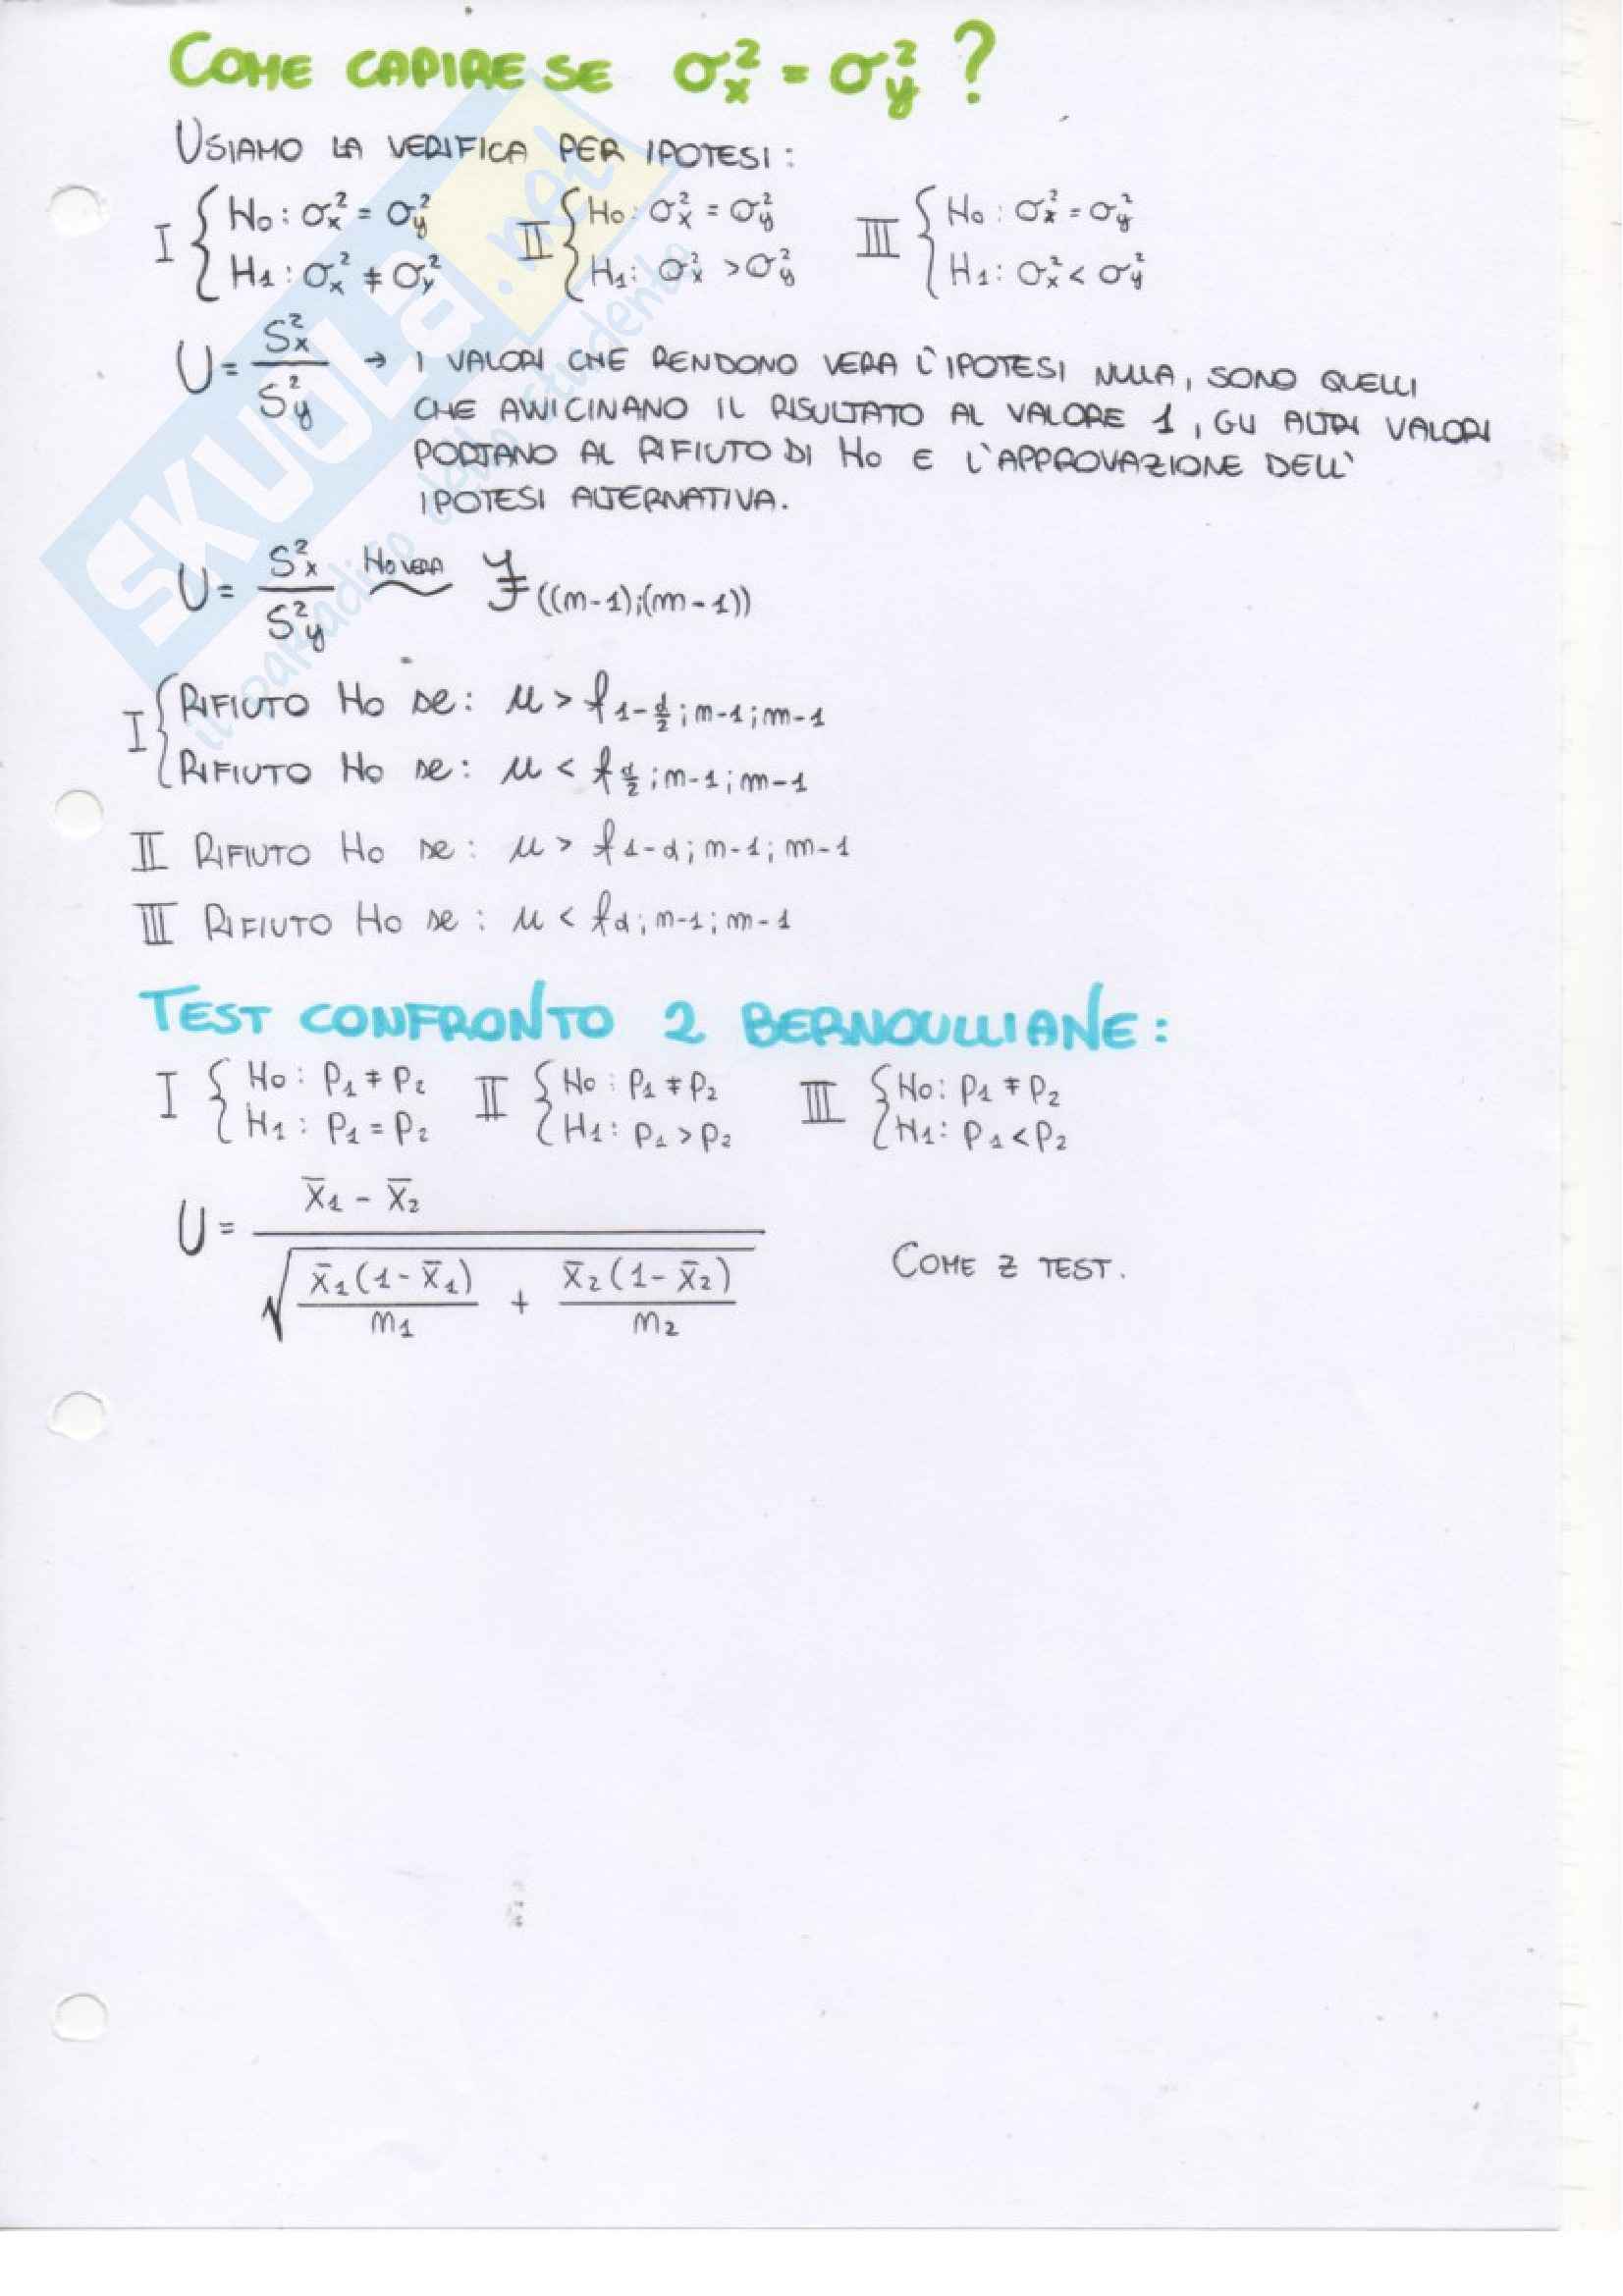 COME CAPIRE SE σ²x = σ²y ?
USIAMO LA VERIFICA PER IPOTESI:
I { H0: σ²x = σ²y II { H0: σ²x = σ²y III { H0: σ²x = σ²y
H1: σ²x ≠ σ²y H1: σ²x > σ²y H1: σ²x < σ²y
U = S²x / S²y → I VALORI CHE RENDONO VERA L'IPOTESI NULLA, SONO QUELLI
CHE AVVICINANO IL RISULTATO AL VALORE 1, GLI ALTRI VALORI
PORTANO AL RIFIUTO DI H0 E L'APPROVAZIONE DELL'
IPOTESI ALTERNATIVA.
U = S²x / S²y H0 VERA ~ F ((n-1);(m-1))
I { RIFIUTO H0 se: u > f 1-α/2; n-1; m-1
RIFIUTO H0 se: u < f α/2; n-1; m-1
II RIFIUTO H0 se: u > f 1-α; n-1; m-1
III RIFIUTO H0 se: u < f α; n-1; m-1
TEST CONFRONTO 2 BERNOULLIANE:
I { H0: p1 ≠ p2 II { H0: p1 ≠ p2 III { H0: p1 ≠ p2
H1: p1 = p2 H1: p1 > p2 H1: p1 < p2
U = (x̄1 - x̄2) / √( x̄1(1-x̄1)/n1 + x̄2(1-x̄2)/n2 ) COME Z TEST.
SKUOLA.net
il paradiso dello studente